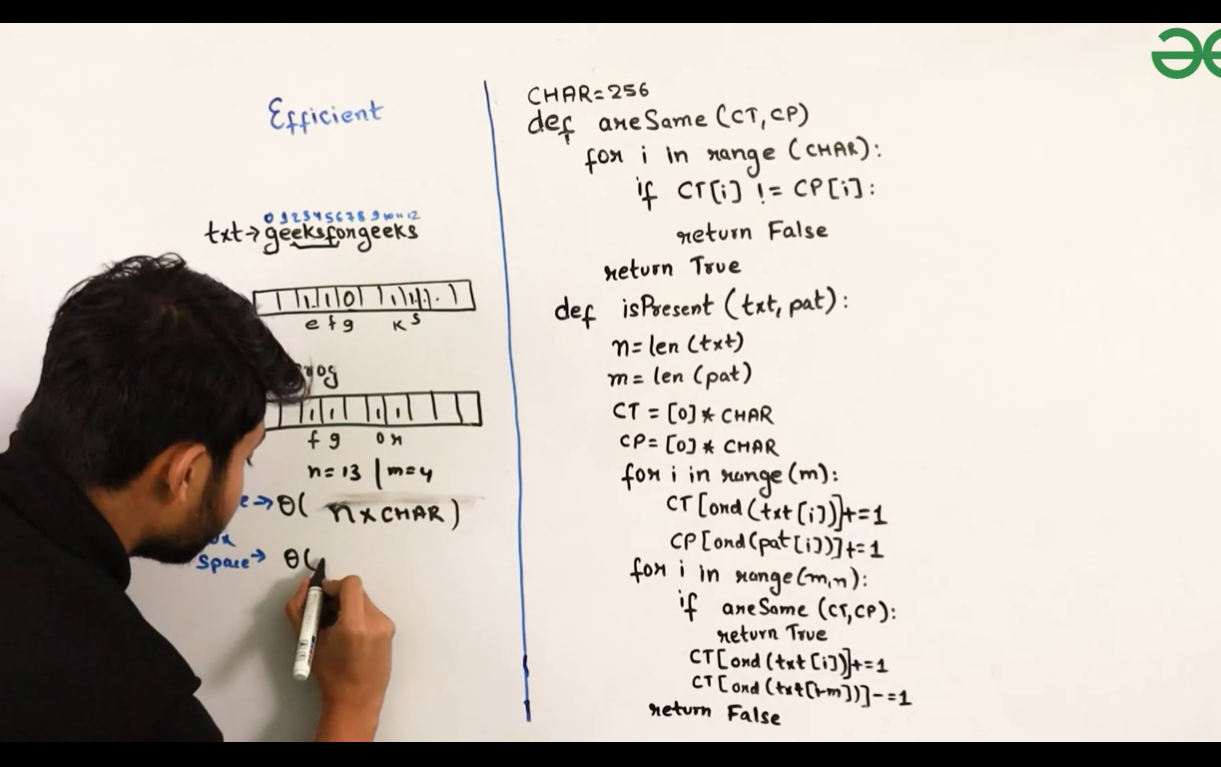 Efficient
0 1 2 3 4 5 6 7 8 9 10 11 12
txt→geeksforgeeks
e f g k s
f g o r
n=13 | m=4
→θ( n×CHAR)
Space→ θ(
CHAR=256
def areSame (CT,CP)
for i in range (CHAR):
if CT[i] != CP[i]:
return False
return True
def isPresent (txt, pat):
n=len (txt)
m= len (pat)
CT = [0]* CHAR
CP= [0] * CHAR
for i in range(m):
CT[ord(txt[i])]+=1
CP[ord(pat[i])]+=1
for i in range(m,n):
if areSame (CT,CP):
return True
CT[ord(txt[i])]+=1
CT[ord(txt[i-m])]-=1
return False